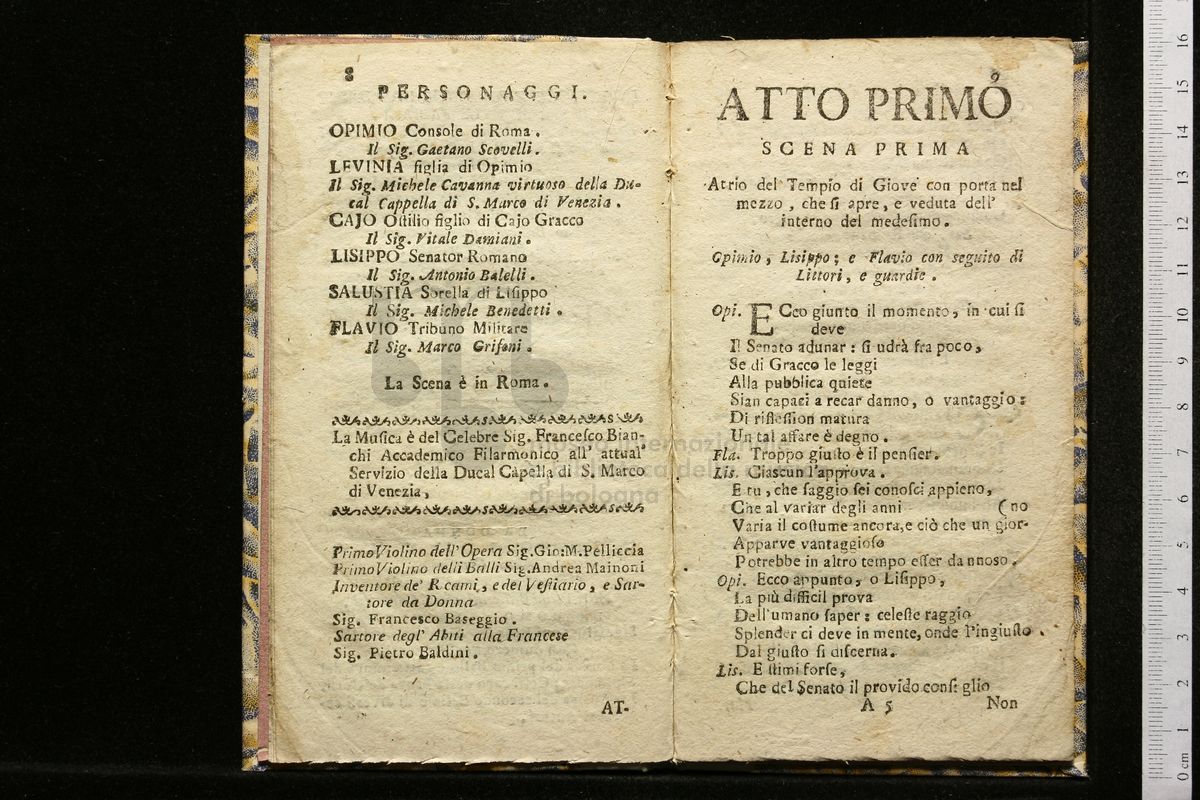 8
PERSONAGGI.
OPIMIO Console di Roma.
Il Sig. Gaetano Scovelli.
LEVINIA figlia di Opimio
Il Sig. Michele Cavanna virtuoso della Du-
cal Cappella di S. Marco di Venezia.
CAJO Oſtilio figlio di Cajo Gracco
Il Sig. Vitale Damiani.
LISIPPO Senator Romano
Il Sig. Antonio Balelli.
SALUSTIA Sorella di Liſippo
Il Sig. Michele Benedetti.
FLAVIO Tribuno Militare
Il Sig. Marco Grifoni.
La Scena è in Roma.
La Muſica è del Celebre Sig. Franceſco Bian-
chi Accademico Filarmonico all' attual
Servizio della Ducal Capella di S. Marco
di Venezia,
Primo Violino dell'Opera Sig. Gio: M. Pelliccia
Primo Violino delli Balli Sig. Andrea Mainoni
Inventore de' Rcami, e del Veſtiario, e Sar-
tore da Donna
Sig. Francesco Baseggio.
Sartore degl' Abiti alla Franceſe
Sig. Pietro Baldini.
AT-
9
ATTO PRIMO
SCENA PRIMA
Atrio del Tempio di Giove con porta nel
mezzo, che ſi apre, e veduta dell'
interno del medeſimo.
Opimio, Liſippo; e Flavio con ſeguito di
Littori, e guardie.
Opi. ECco giunto il momento, in cui ſi
deve
Il Senato adunar: ſi udrà fra poco,
Se di Gracco le leggi
Alla pubblica quiete
Sian capaci a recar danno, o vantaggio:
Di rifleſſion matura
Un tal affare è degno.
Fla. Troppo giuſto è il penſier.
Lis. Ciascun l'approva.
E tu, che ſaggio ſei conoſci appieno,
Che al variar degli anni (no
Varia il coſtume ancora, e ciò che un gior-
Apparve vantaggioſo
Potrebbe in altro tempo eſſer dannoso.
Opi. Ecco appunto, o Liſippo,
La più difficil prova
Dell'umano ſaper: celeſte raggio
Splender ci deve in mente, onde l'ingiuſto
Dal giuſto ſi diſcerna.
Lis. E ſtimi forſe,
Che del Senato il provido conſiglio
A 5 Non
museo internazionale
e biblioteca della musica
di bologna
0 cm 1 2 3 4 5 6 7 8 9 10 11 12 13 14 15 16